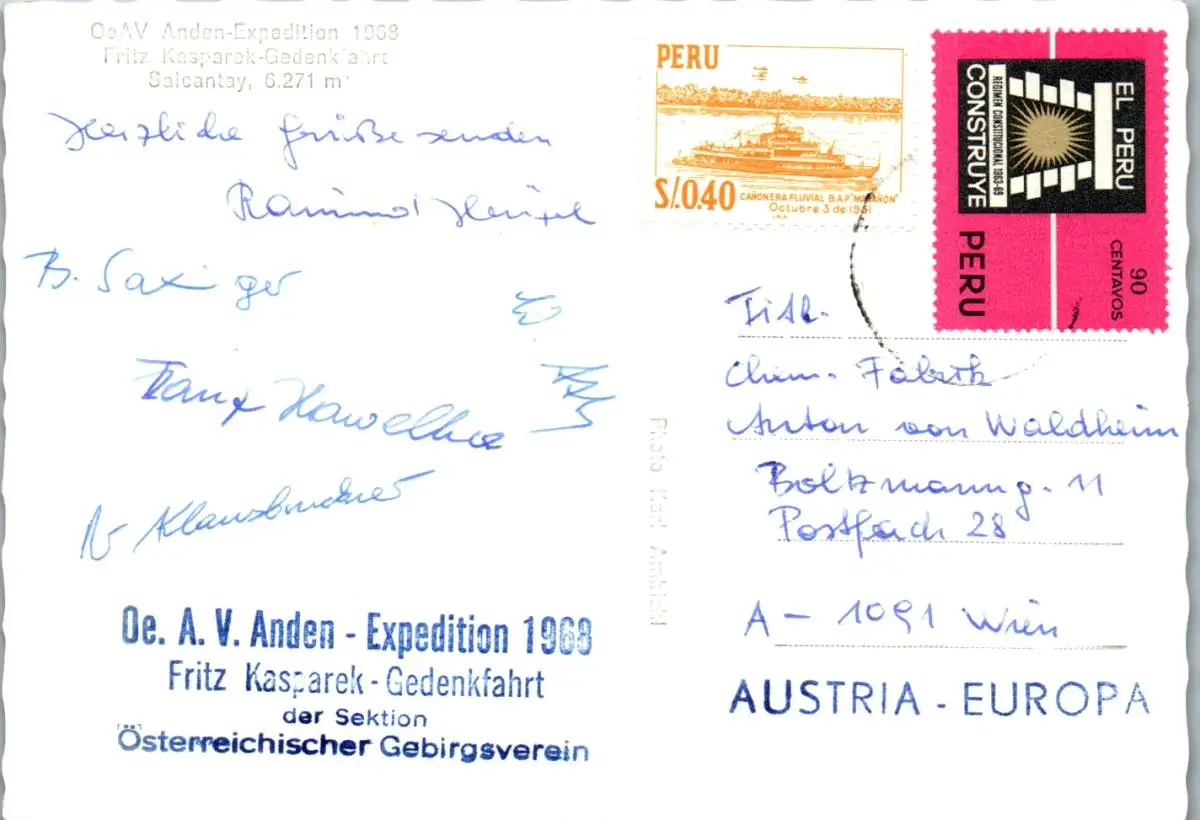 OeAV Anden-Expedition 1968
Fritz Kasparek-Gedenkfahrt
Salcantay, 6.271 m
Herzliche Grüße senden
Raimund Heinzel
B. Saxinger
Franz Hawelka
Klausbruckner
Oe. A. V. Anden - Expedition 1968
Fritz Kasparek - Gedenkfahrt
der Sektion
Österreichischer Gebirgsverein
PERU
S/.0.40
CAÑONERA FLUVIAL B.A.P "MARAÑON"
Octubre 3 de 1951
EL PERU
CONSTRUYE
REGIMEN CONSTITUCIONAL 1963-69
90
CENTAVOS
PERU
Titl.
Chem. Fabrik
Anton von Waldheim
Boltzmanng. 11
Postfach 28
A - 1091 Wien
AUSTRIA - EUROPA
Photo Karl